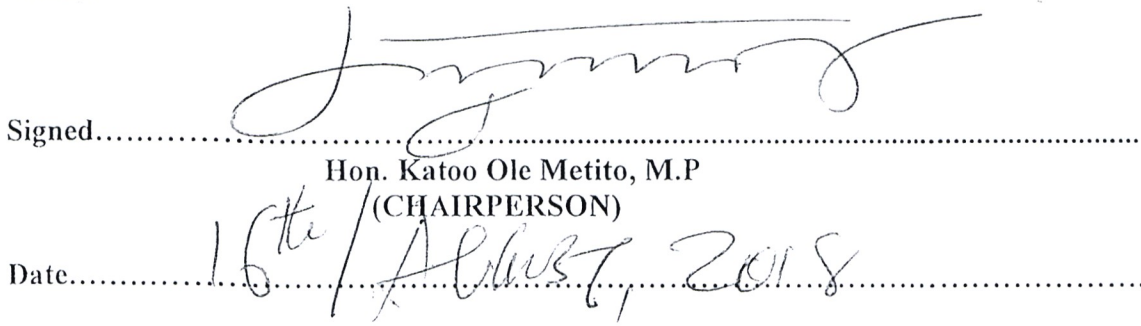 Signed........................................................................
Hon. Katoo Ole Metito, M.P
(CHAIRPERSON)
Date............16th/August, 2018............